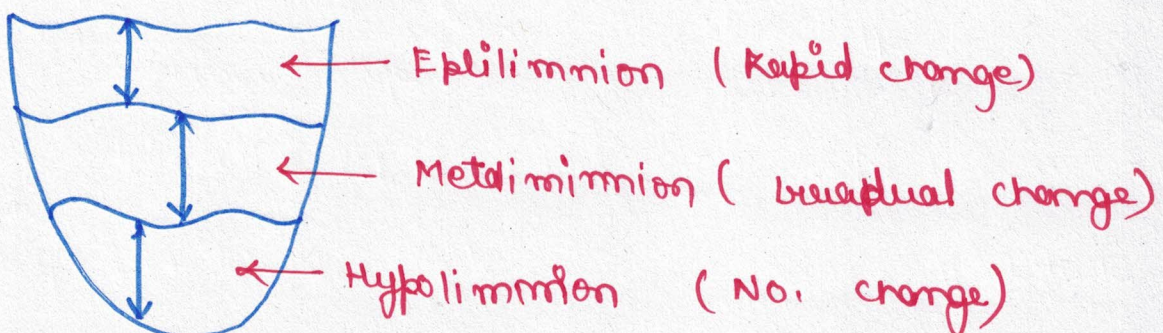 Eplilimnion (Rapid change)
Metalimimnion (Gradual change)
Hypolimnion (No. change)